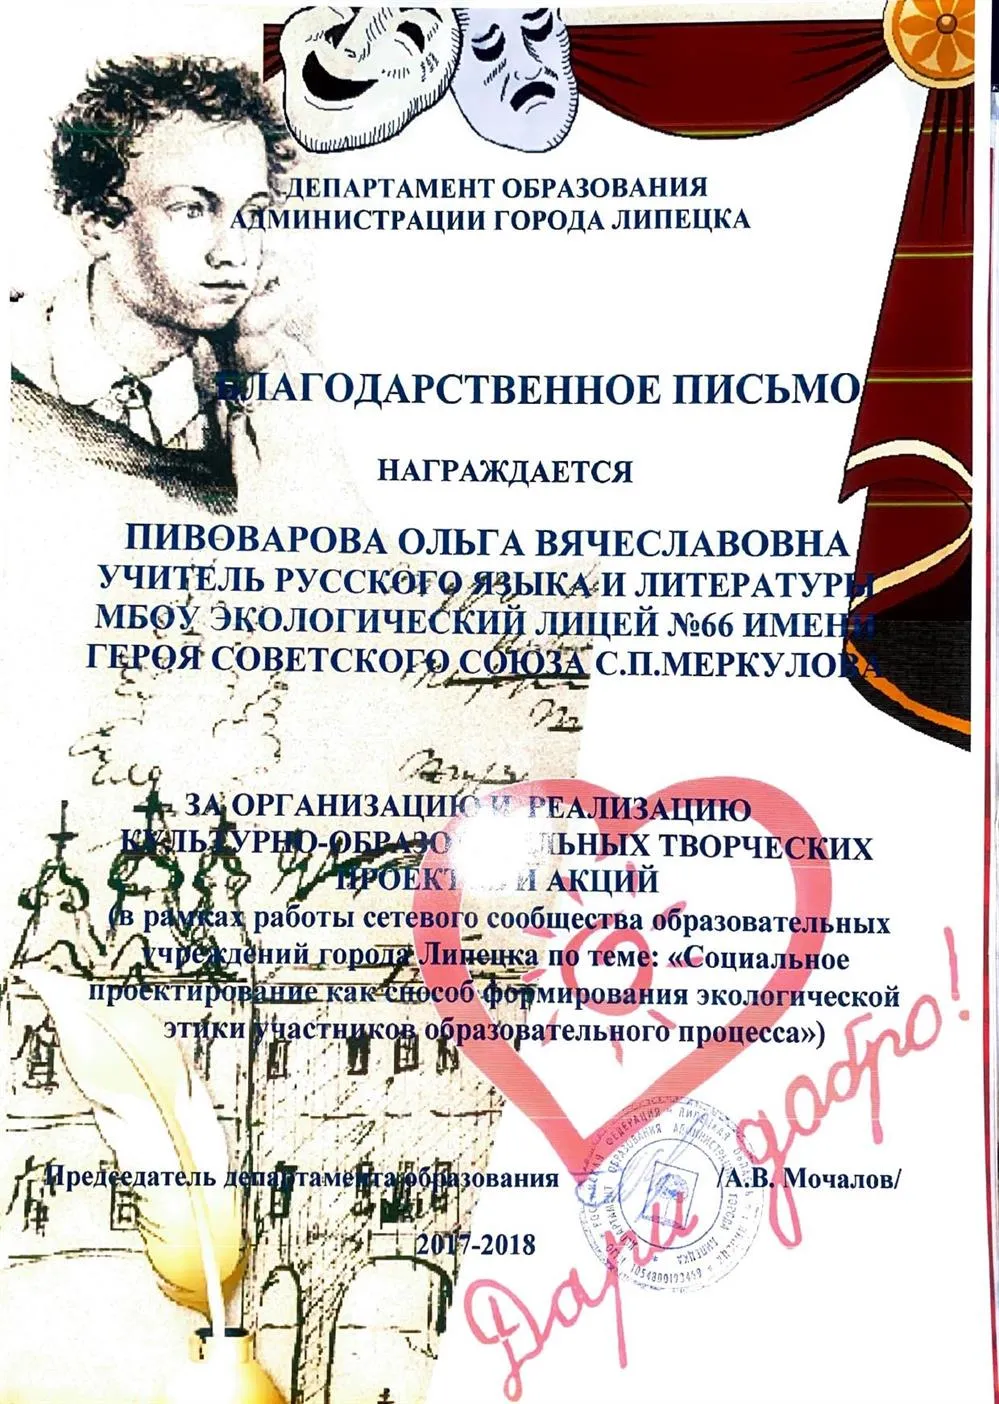 ДЕПАРТАМЕНТ ОБРАЗОВАНИЯ
АДМИНИСТРАЦИИ ГОРОДА ЛИПЕЦКА
БЛАГОДАРСТВЕННОЕ ПИСЬМО
НАГРАЖДАЕТСЯ
ПИВОВАРОВА ОЛЬГА ВЯЧЕСЛАВОВНА
УЧИТЕЛЬ РУССКОГО ЯЗЫКА И ЛИТЕРАТУРЫ
МБОУ ЭКОЛОГИЧЕСКИЙ ЛИЦЕЙ №66 ИМЕНИ
ГЕРОЯ СОВЕТСКОГО СОЮЗА С.П.МЕРКУЛОВА
ЗА ОРГАНИЗАЦИЮ И РЕАЛИЗАЦИЮ
КУЛЬТУРНО-ОБРАЗОВАТЕЛЬНЫХ ТВОРЧЕСКИХ
ПРОЕКТОВ И АКЦИЙ
(в рамках работы сетевого сообщества образовательных
учреждений города Липецка по теме: «Социальное
проектирование как способ формирования экологической
этики участников образовательного процесса»)
Председатель департамента образования /А.В. Мочалов/
2017-2018
Дари добро!